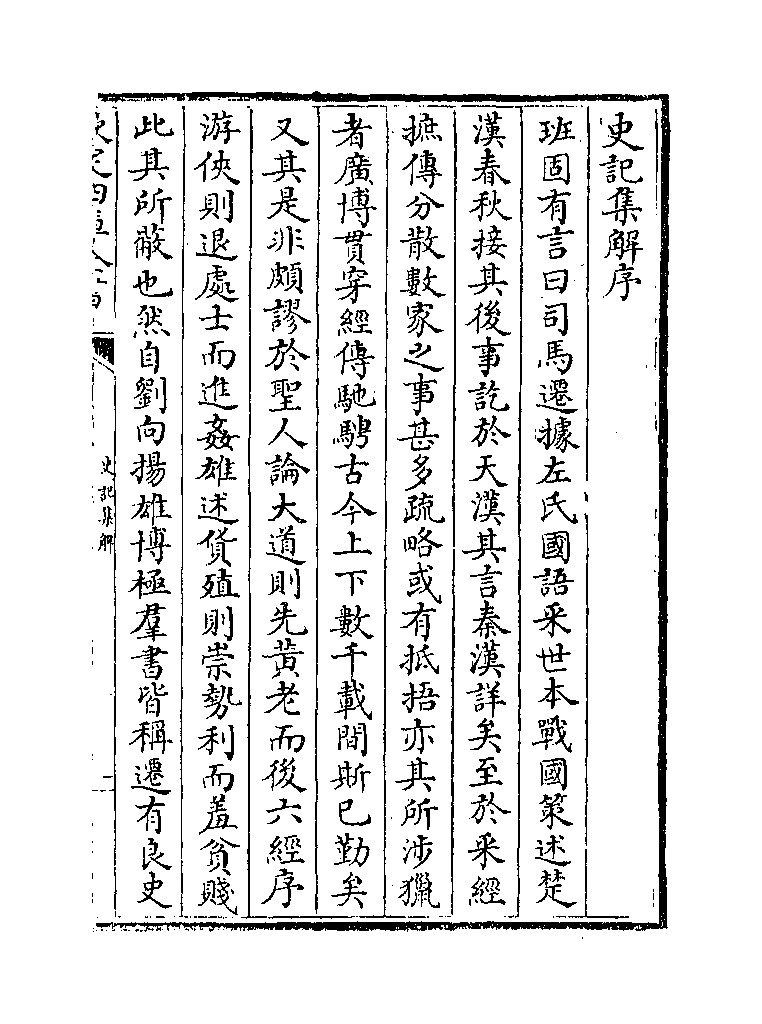 史記集解序
班固有言曰司馬遷據左氏國語采世本戰國策述楚
漢春秋接其後事訖於天漢其言秦漢詳矣至於采經
摭傳分散數家之事甚多疏略或有抵捂亦其所涉獵
者廣博貫穿經傳馳騁古今上下數千載間斯已勤矣
又其是非頗謬於聖人論大道則先黃老而後六經序
游俠則退處士而進姦雄述貨殖則崇勢利而羞貧賤
此其所蔽也然自劉向揚雄博極羣書皆稱遷有良史
史記集解